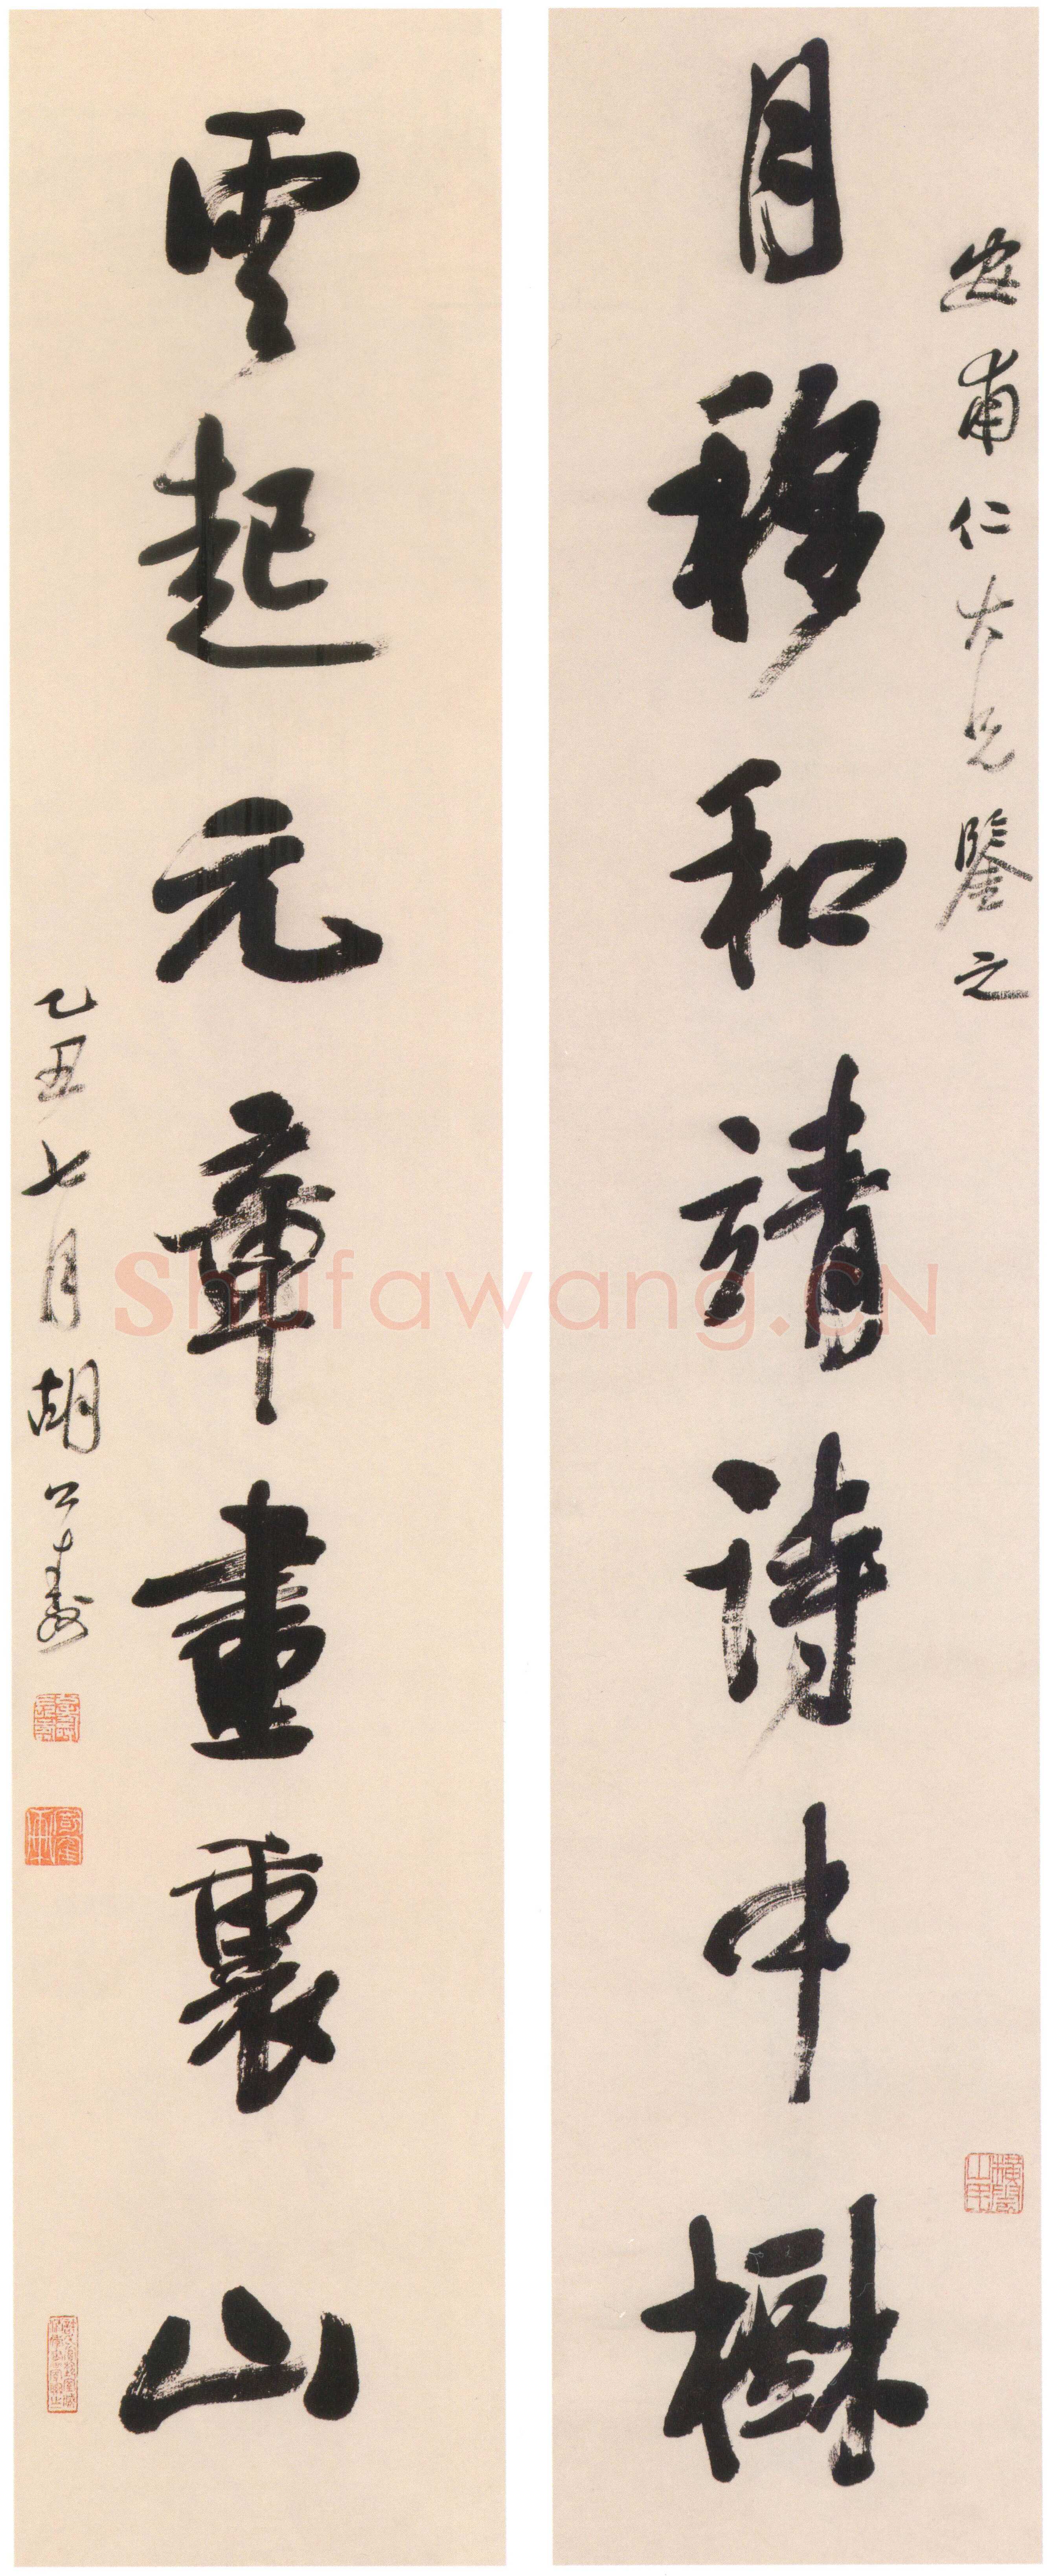 安甫仁大兄鑒之
月移和靖詩中樹
雲起元章畫裏山
乙丑七月胡公壽
橫雲山民
Shufawang.CN